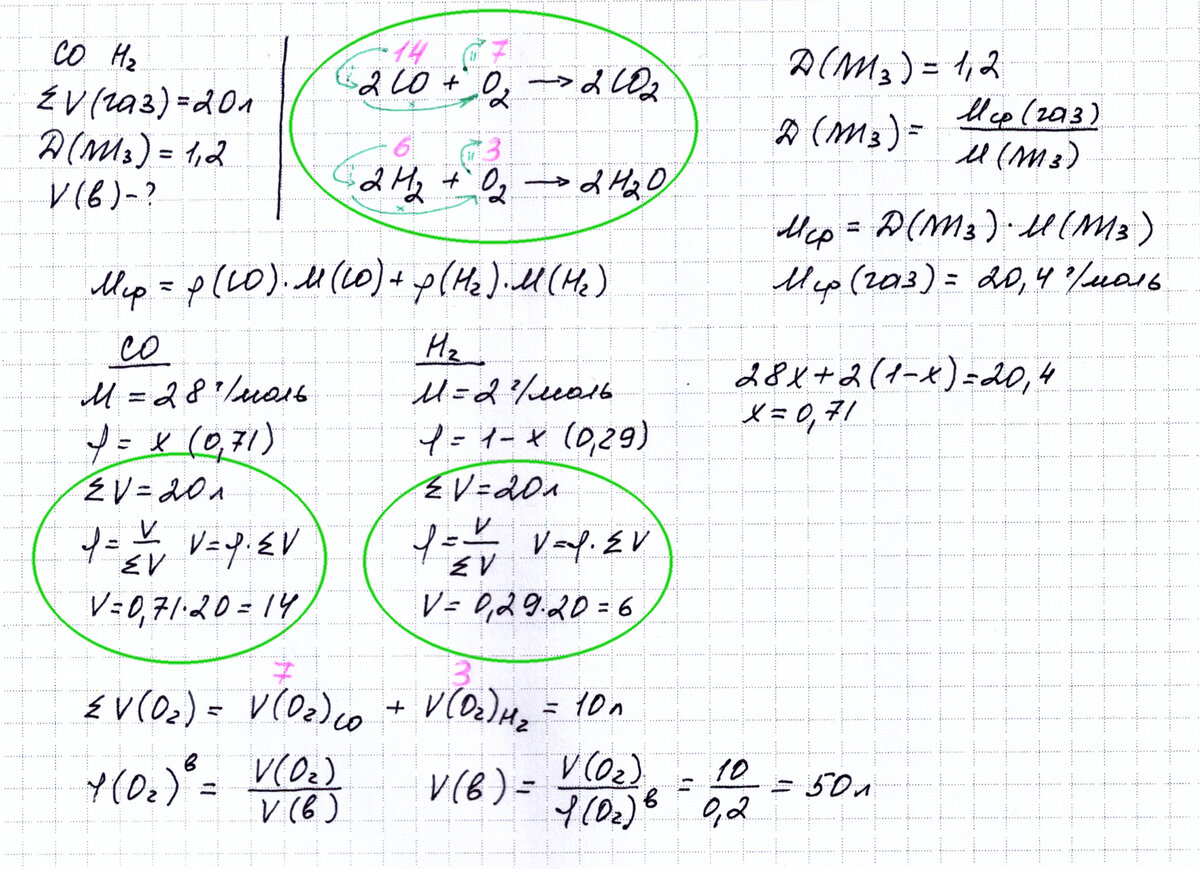 CO H₂
ΣV(газ)=20л
D(NH₃)=1,2
V(в)-?
14 7
2CO + O₂ → 2CO₂
x
6 3
2H₂ + O₂ → 2H₂O
x
D(NH₃)=1,2
D(NH₃)= Mср(газ)/M(NH₃)
Mср = D(NH₃)·M(NH₃)
Mср(газ) = 20,4 г/моль
Mср = φ(CO)·M(CO)+φ(H₂)·M(H₂)
CO
M = 28 г/моль
φ = x (0,71)
ΣV=20л
φ= V/ΣV V=φ·ΣV
V=0,71·20=14
H₂
M=2 г/моль
φ = 1-x (0,29)
ΣV=20л
φ= V/ΣV V=φ·ΣV
V= 0,29·20=6
28x+2(1-x)=20,4
x=0,71
7 3
ΣV(O₂) = V(O₂)CO + V(O₂)H₂ = 10л
φ(O₂)ᵇ = V(O₂)/V(в) V(в) = V(O₂)/φ(O₂)ᵇ = 10/0,2 = 50л